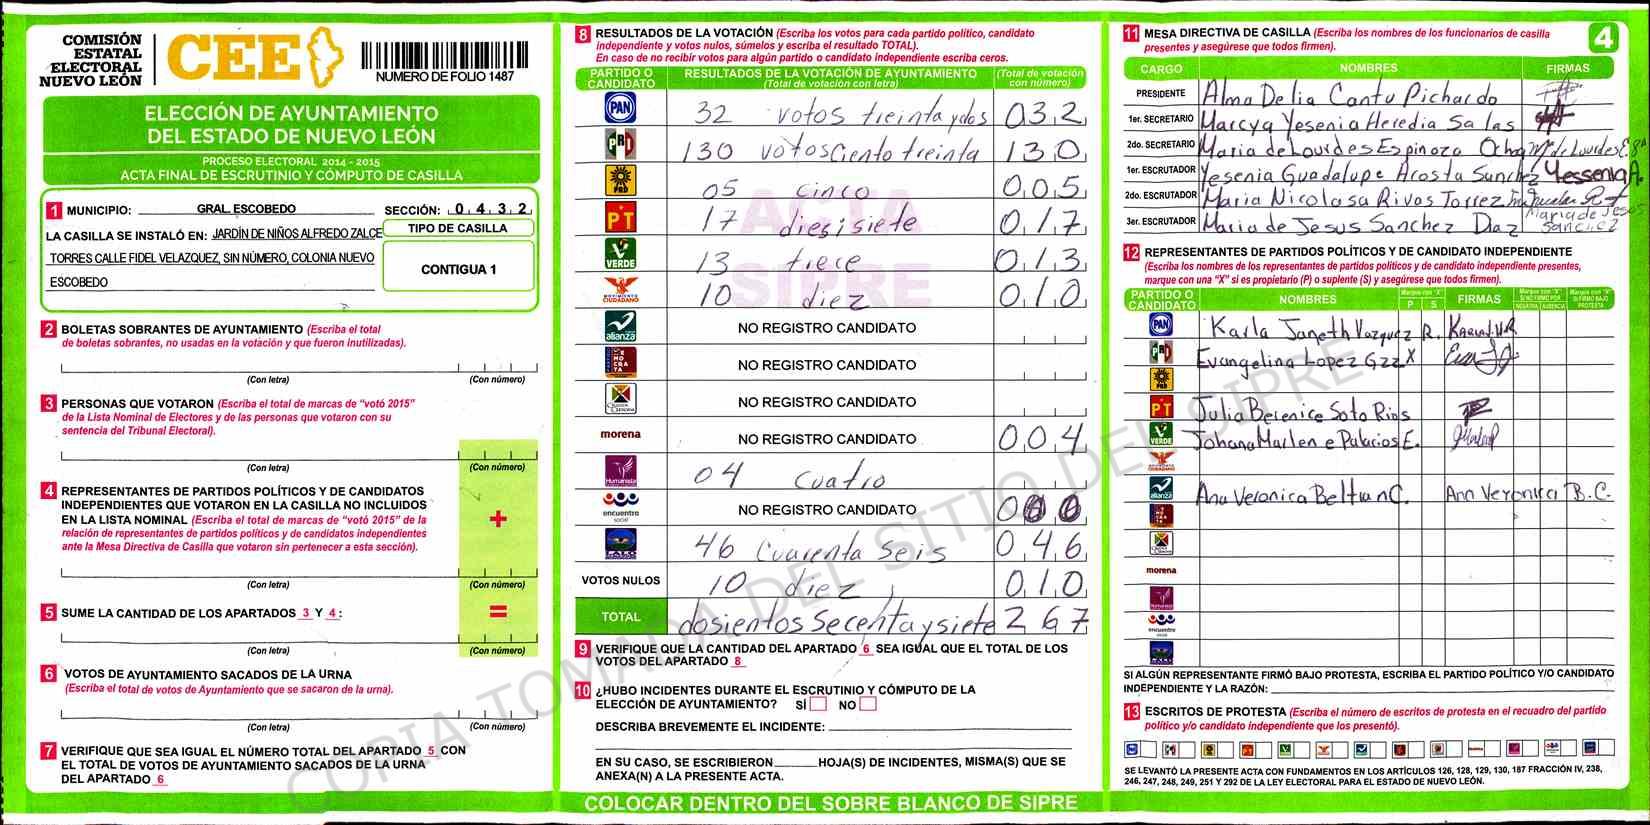 COMISIÓN
ESTATAL
ELECTORAL
NUEVO LEÓN
CEE
NUMERO DE FOLIO 1487
ELECCIÓN DE AYUNTAMIENTO
DEL ESTADO DE NUEVO LEÓN
PROCESO ELECTORAL 2014 - 2015
ACTA FINAL DE ESCRUTINIO Y CÓMPUTO DE CASILLA
1 MUNICIPIO: GRAL. ESCOBEDO SECCIÓN: 0 4 3 2
LA CASILLA SE INSTALÓ EN: JARDÍN DE NIÑOS ALFREDO ZALCE
TORRES CALLE FIDEL VELAZQUEZ, SIN NÚMERO, COLONIA NUEVO
ESCOBEDO
TIPO DE CASILLA
CONTIGUA 1
2 BOLETAS SOBRANTES DE AYUNTAMIENTO (Escriba el total
de boletas sobrantes, no usadas en la votación y que fueron inutilizadas).
(Con letra) (Con número)
3 PERSONAS QUE VOTARON (Escriba el total de marcas de “votó 2015”
de la Lista Nominal de Electores y de las personas que votaron con su
sentencia del Tribunal Electoral).
(Con letra) (Con número)
4 REPRESENTANTES DE PARTIDOS POLÍTICOS Y DE CANDIDATOS
INDEPENDIENTES QUE VOTARON EN LA CASILLA NO INCLUIDOS
EN LA LISTA NOMINAL (Escriba el total de marcas de “votó 2015” de la
relación de representantes de partidos políticos y de candidatos independientes
ante la Mesa Directiva de Casilla que votaron sin pertenecer a esta sección).
+
(Con letra) (Con número)
5 SUME LA CANTIDAD DE LOS APARTADOS 3 Y 4:
=
(Con letra) (Con número)
6 VOTOS DE AYUNTAMIENTO SACADOS DE LA URNA
(Escriba el total de votos de Ayuntamiento que se sacaron de la urna).
(Con letra) (Con número)
7 VERIFIQUE QUE SEA IGUAL EL NÚMERO TOTAL DEL APARTADO 5 CON
EL TOTAL DE VOTOS DE AYUNTAMIENTO SACADOS DE LA URNA
DEL APARTADO 6
8 RESULTADOS DE LA VOTACIÓN (Escriba los votos para cada partido político, candidato
independiente y votos nulos, súmelos y escriba el resultado TOTAL).
En caso de no recibir votos para algún partido o candidato independiente escriba ceros.
PARTIDO O CANDIDATO RESULTADOS DE LA VOTACIÓN DE AYUNTAMIENTO (Total de votación con letra) (Total de votación con número)
PAN 32 votos treinta y dos 032
PRI 130 votos ciento treinta 130
PRD 05 cinco 005
PT 17 diesisiete 017
VERDE 13 trece 013
MOVIMIENTO CIUDADANO 10 diez 010
alianza NO REGISTRO CANDIDATO
DEMOCRATA NO REGISTRO CANDIDATO
NO REGISTRO CANDIDATO
morena NO REGISTRO CANDIDATO 004
Humanista 04 cuatro
encuentro social NO REGISTRO CANDIDATO 000
46 Cuarenta Seis 046
VOTOS NULOS 10 diez 010
TOTAL dosientos Secenta y siete 267
ACTA
SIPRE
9 VERIFIQUE QUE LA CANTIDAD DEL APARTADO 6 SEA IGUAL QUE EL TOTAL DE LOS
VOTOS DEL APARTADO 8
10 ¿HUBO INCIDENTES DURANTE EL ESCRUTINIO Y CÓMPUTO DE LA
ELECCIÓN DE AYUNTAMIENTO? SÍ NO
DESCRIBA BREVEMENTE EL INCIDENTE:
EN SU CASO, SE ESCRIBIERON HOJA(S) DE INCIDENTES, MISMA(S) QUE SE
ANEXA(N) A LA PRESENTE ACTA.
COLOCAR DENTRO DEL SOBRE BLANCO DE SIPRE
11 MESA DIRECTIVA DE CASILLA (Escriba los nombres de los funcionarios de casilla
presentes y asegúrese que todos firmen).
4
CARGO NOMBRES FIRMAS
PRESIDENTE Alma Delia Cantu Pichardo
1er. SECRETARIO Marcya Yesenia Heredia Salas
2do. SECRETARIO Maria de Lourdes Espinoza Ochoa Ma de Lourdes E.
1er. ESCRUTADOR Yesenia Guadalupe Acosta Sanchez Yessenia A.
2do. ESCRUTADOR Maria Nicolasa Rivas Torrez
3er. ESCRUTADOR Maria de Jesus Sanchez Diaz Maria de Jesus Sanchez
12 REPRESENTANTES DE PARTIDOS POLÍTICOS Y DE CANDIDATO INDEPENDIENTE
(Escriba los nombres de los representantes de partidos políticos y de candidato independiente presentes,
marque con una “X” si es propietario (P) o suplente (S) y asegúrese que todos firmen).
PARTIDO O CANDIDATO NOMBRES Marque con “X” P S FIRMAS Marque con “X” SI NO FIRMÓ POR NEGATIVA AUSENCIA Marque con “X” SI FIRMÓ BAJO PROTESTA
PAN Karla Janeth Vazquez R. Karla J.V.R
PRI Evangelina Lopez Gzz X
PRD
PT Julia Berenice Soto Rios
VERDE Johana Marlene Palacios E.
alianza Ana Veronica Beltran C. Ana Veronica B.C.
morena
Humanista
encuentro social
SI ALGÚN REPRESENTANTE FIRMÓ BAJO PROTESTA, ESCRIBA EL PARTIDO POLÍTICO Y/O CANDIDATO
INDEPENDIENTE Y LA RAZÓN:
13 ESCRITOS DE PROTESTA (Escriba el número de escritos de protesta en el recuadro del partido
político y/o candidato independiente que los presentó).
SE LEVANTÓ LA PRESENTE ACTA CON FUNDAMENTOS EN LOS ARTÍCULOS 126, 128, 129, 130, 187 FRACCIÓN IV, 238,
246, 247, 248, 249, 251 Y 292 DE LA LEY ELECTORAL PARA EL ESTADO DE NUEVO LEÓN.
COPIA TOMADA DEL SITIO DEL SIPRE